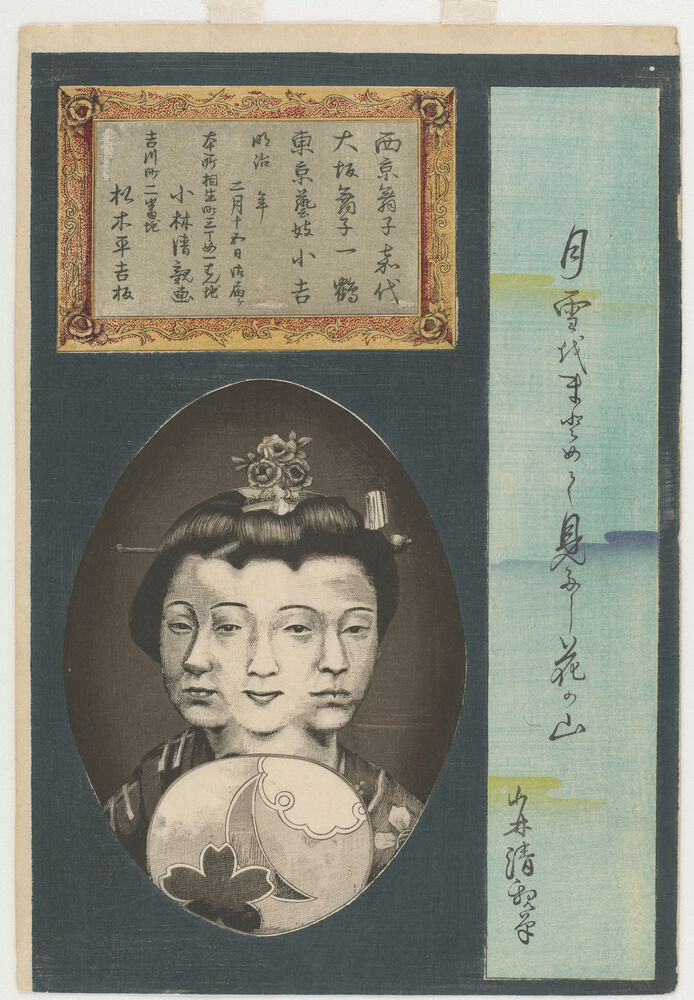 月雪をまとめて見たし花の山
小林清親筆
西京舞子嘉代
大坂舞子一鶴
東京藝妓小吉
明治 年
二月十五日御届ケ
本所相生町三丁め一番地
小林清親画
吉川町二番地
松木平吉板